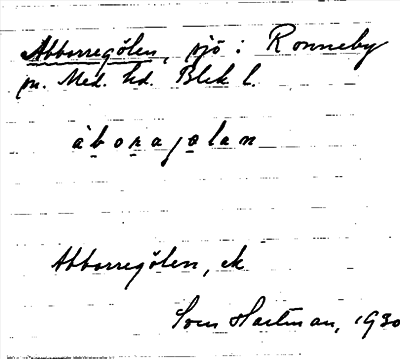 Abborregölen, sjö i Ronneby
sn. Med. hd. Blek l.
àborajølan
Abborregölen, ek
Sven Hartman, 1930